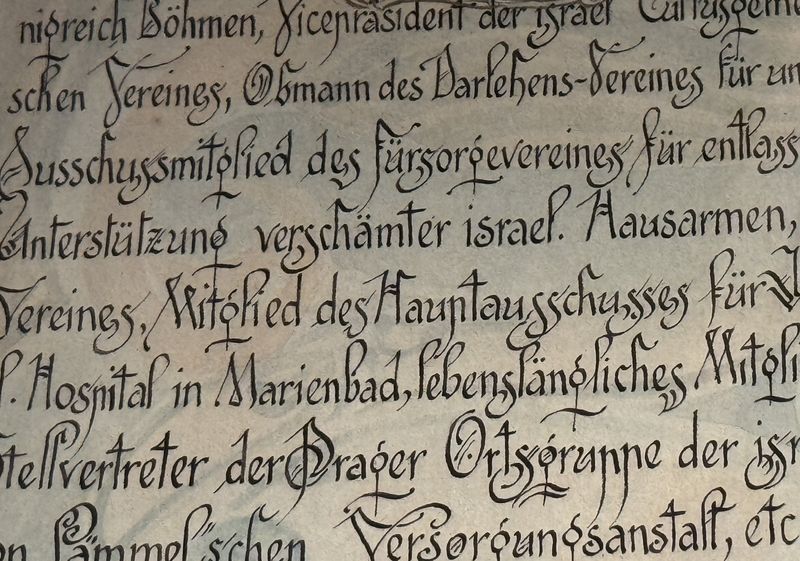 nigreich Böhmen, Vicepräsident der israel Cultusgeme
schen Vereines, Obmann des Darlehens-Vereines für un
Ausschussmitglied des Fürsorgevereines für entlass
Unterstützung verschämter israel. Hausarmen,
Vereines, Mitglied des Hauptausschusses für
l. Hospital in Marienbad, lebenslängliches Mitgli
tellvertreter der Prager Ortsgruppe der isr
on Lämmel'schen Versorgungsanstalt, etc